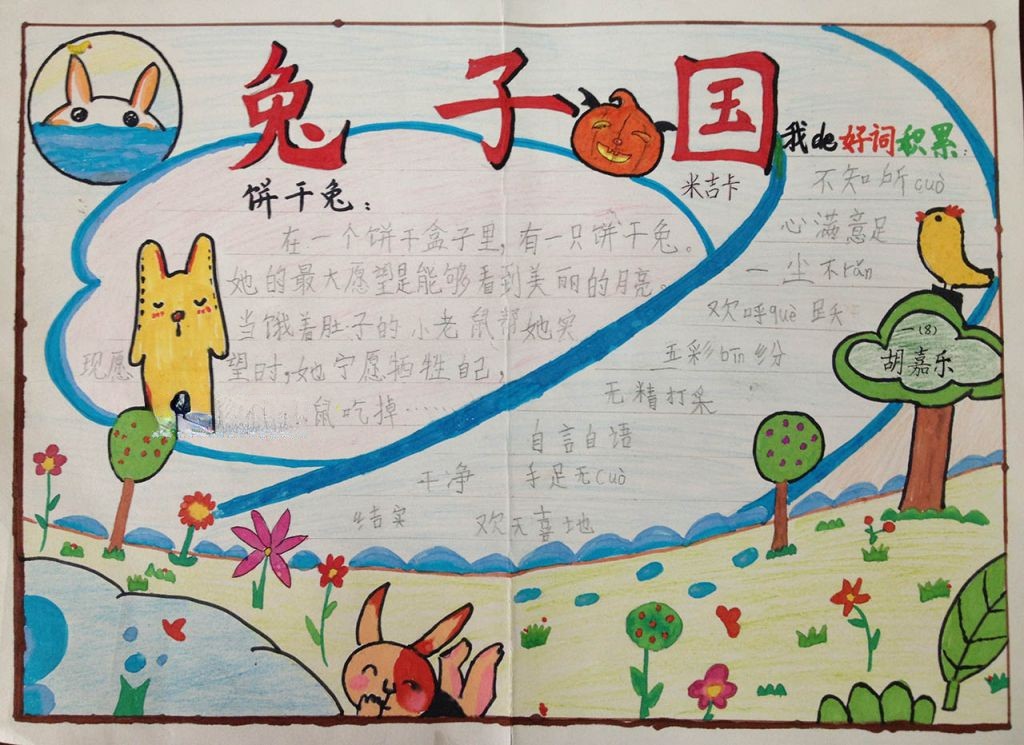 兔子国
米吉卡
饼干兔：
在一个饼干盒子里，有一只饼干兔。
她的最大愿望是能够看到美丽的月亮。
当饿着肚子的小老鼠帮她实
现愿望时，她宁愿牺牲自己，
鼠吃掉……
我de好词积累：
不知所cuò
心满意足
一尘不rǎn
欢呼què跃
五彩bīn纷
无精打采
自言自语
干净 手足无cuò
结实 欢天喜地
一(8)
胡嘉乐